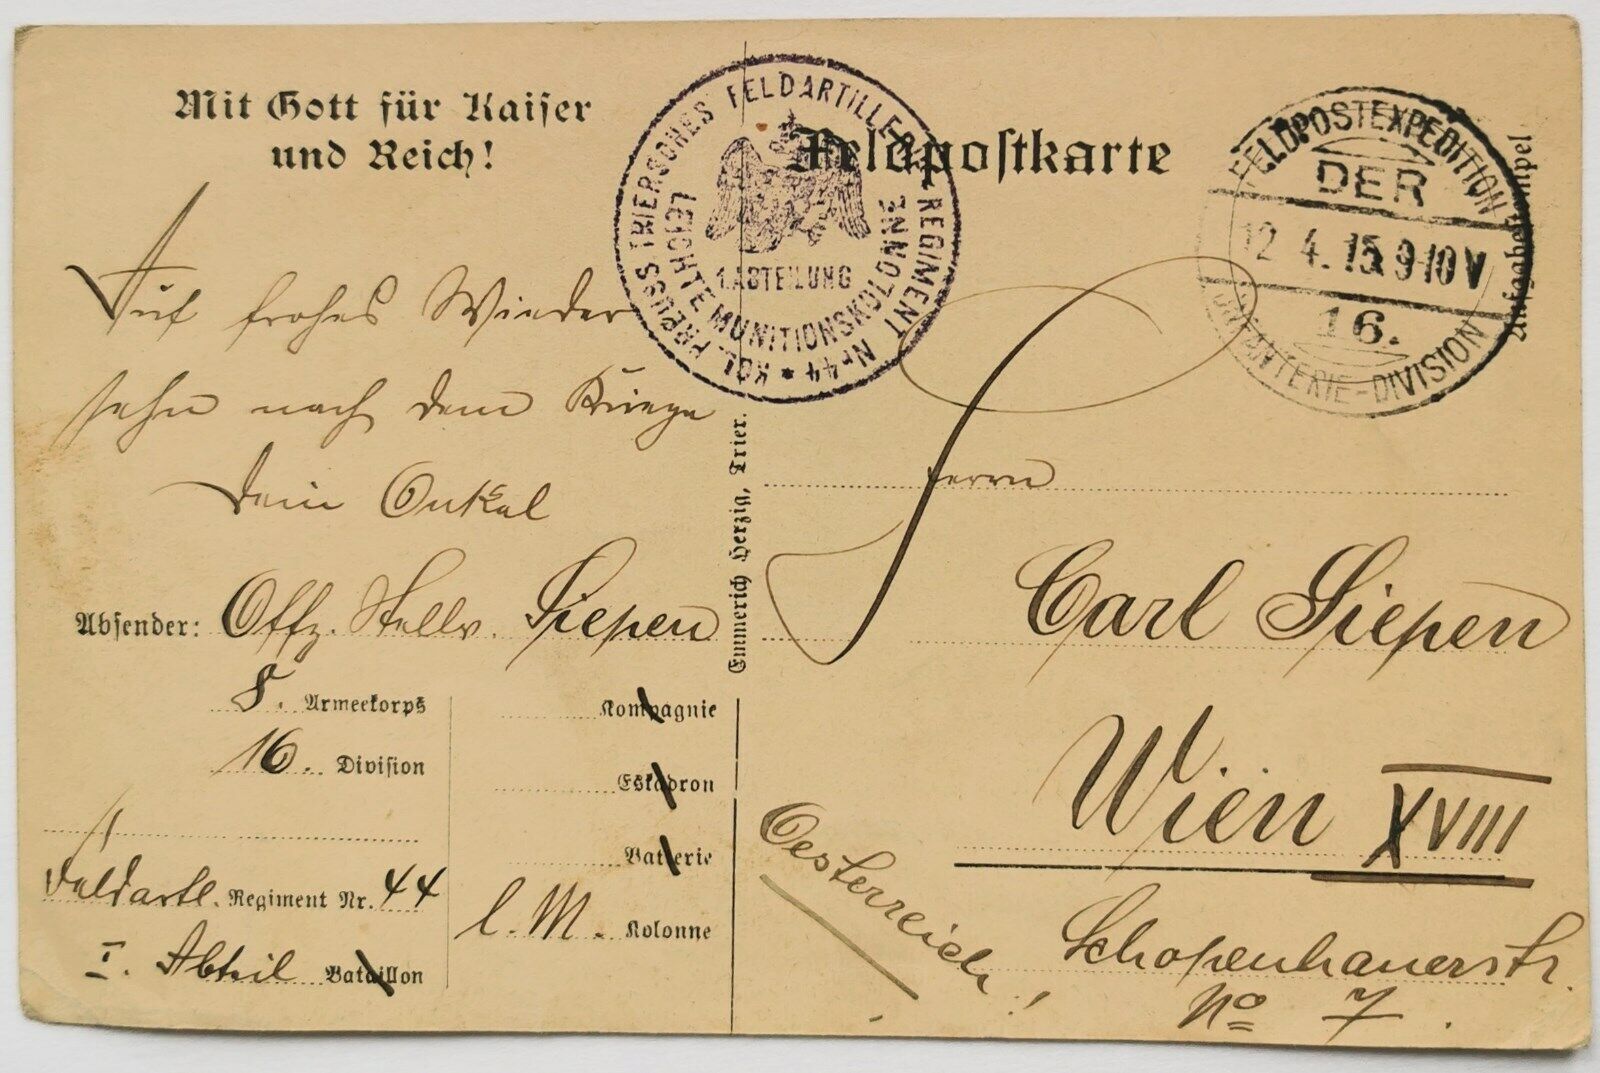 Mit Gott für Kaiser
und Reich!
Feldpostkarte
KGL. PREUSS TRIERSCHES FELDARTILLERIE REGIMENT Nr 44 *
LEICHTE MUNITIONSKOLONNE
1. ABTEILUNG
FELDPOSTEXPEDITION
DER
12 4. 15 9-10 V
16.
INFANTERIE-DIVISION
Aufgabestempel
Auf frohes Wieder
sehn nach dem Kriege
Dein Onkel
Absender: Offz. Stellv. Siepen
8. Armeekorps
16. Division
Feldartl. Regiment Nr. 44
I. Abteil Bataillon
Kompagnie
Eskadron
Batterie
l. M. Kolonne
Emmerich Herzig, Trier.
Herrn
Carl Siepen
Wien XVIII
Oesterreich!
Schopenhauerstr.
No 7.